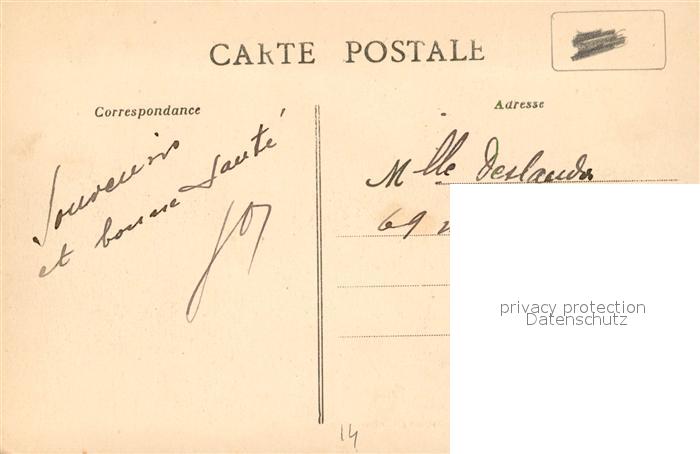 CARTE POSTALE
Correspondance
Adresse
Souvenirs
et bonne santé
Mlle Deslandes
69
privacy protection
Datenschutz
14